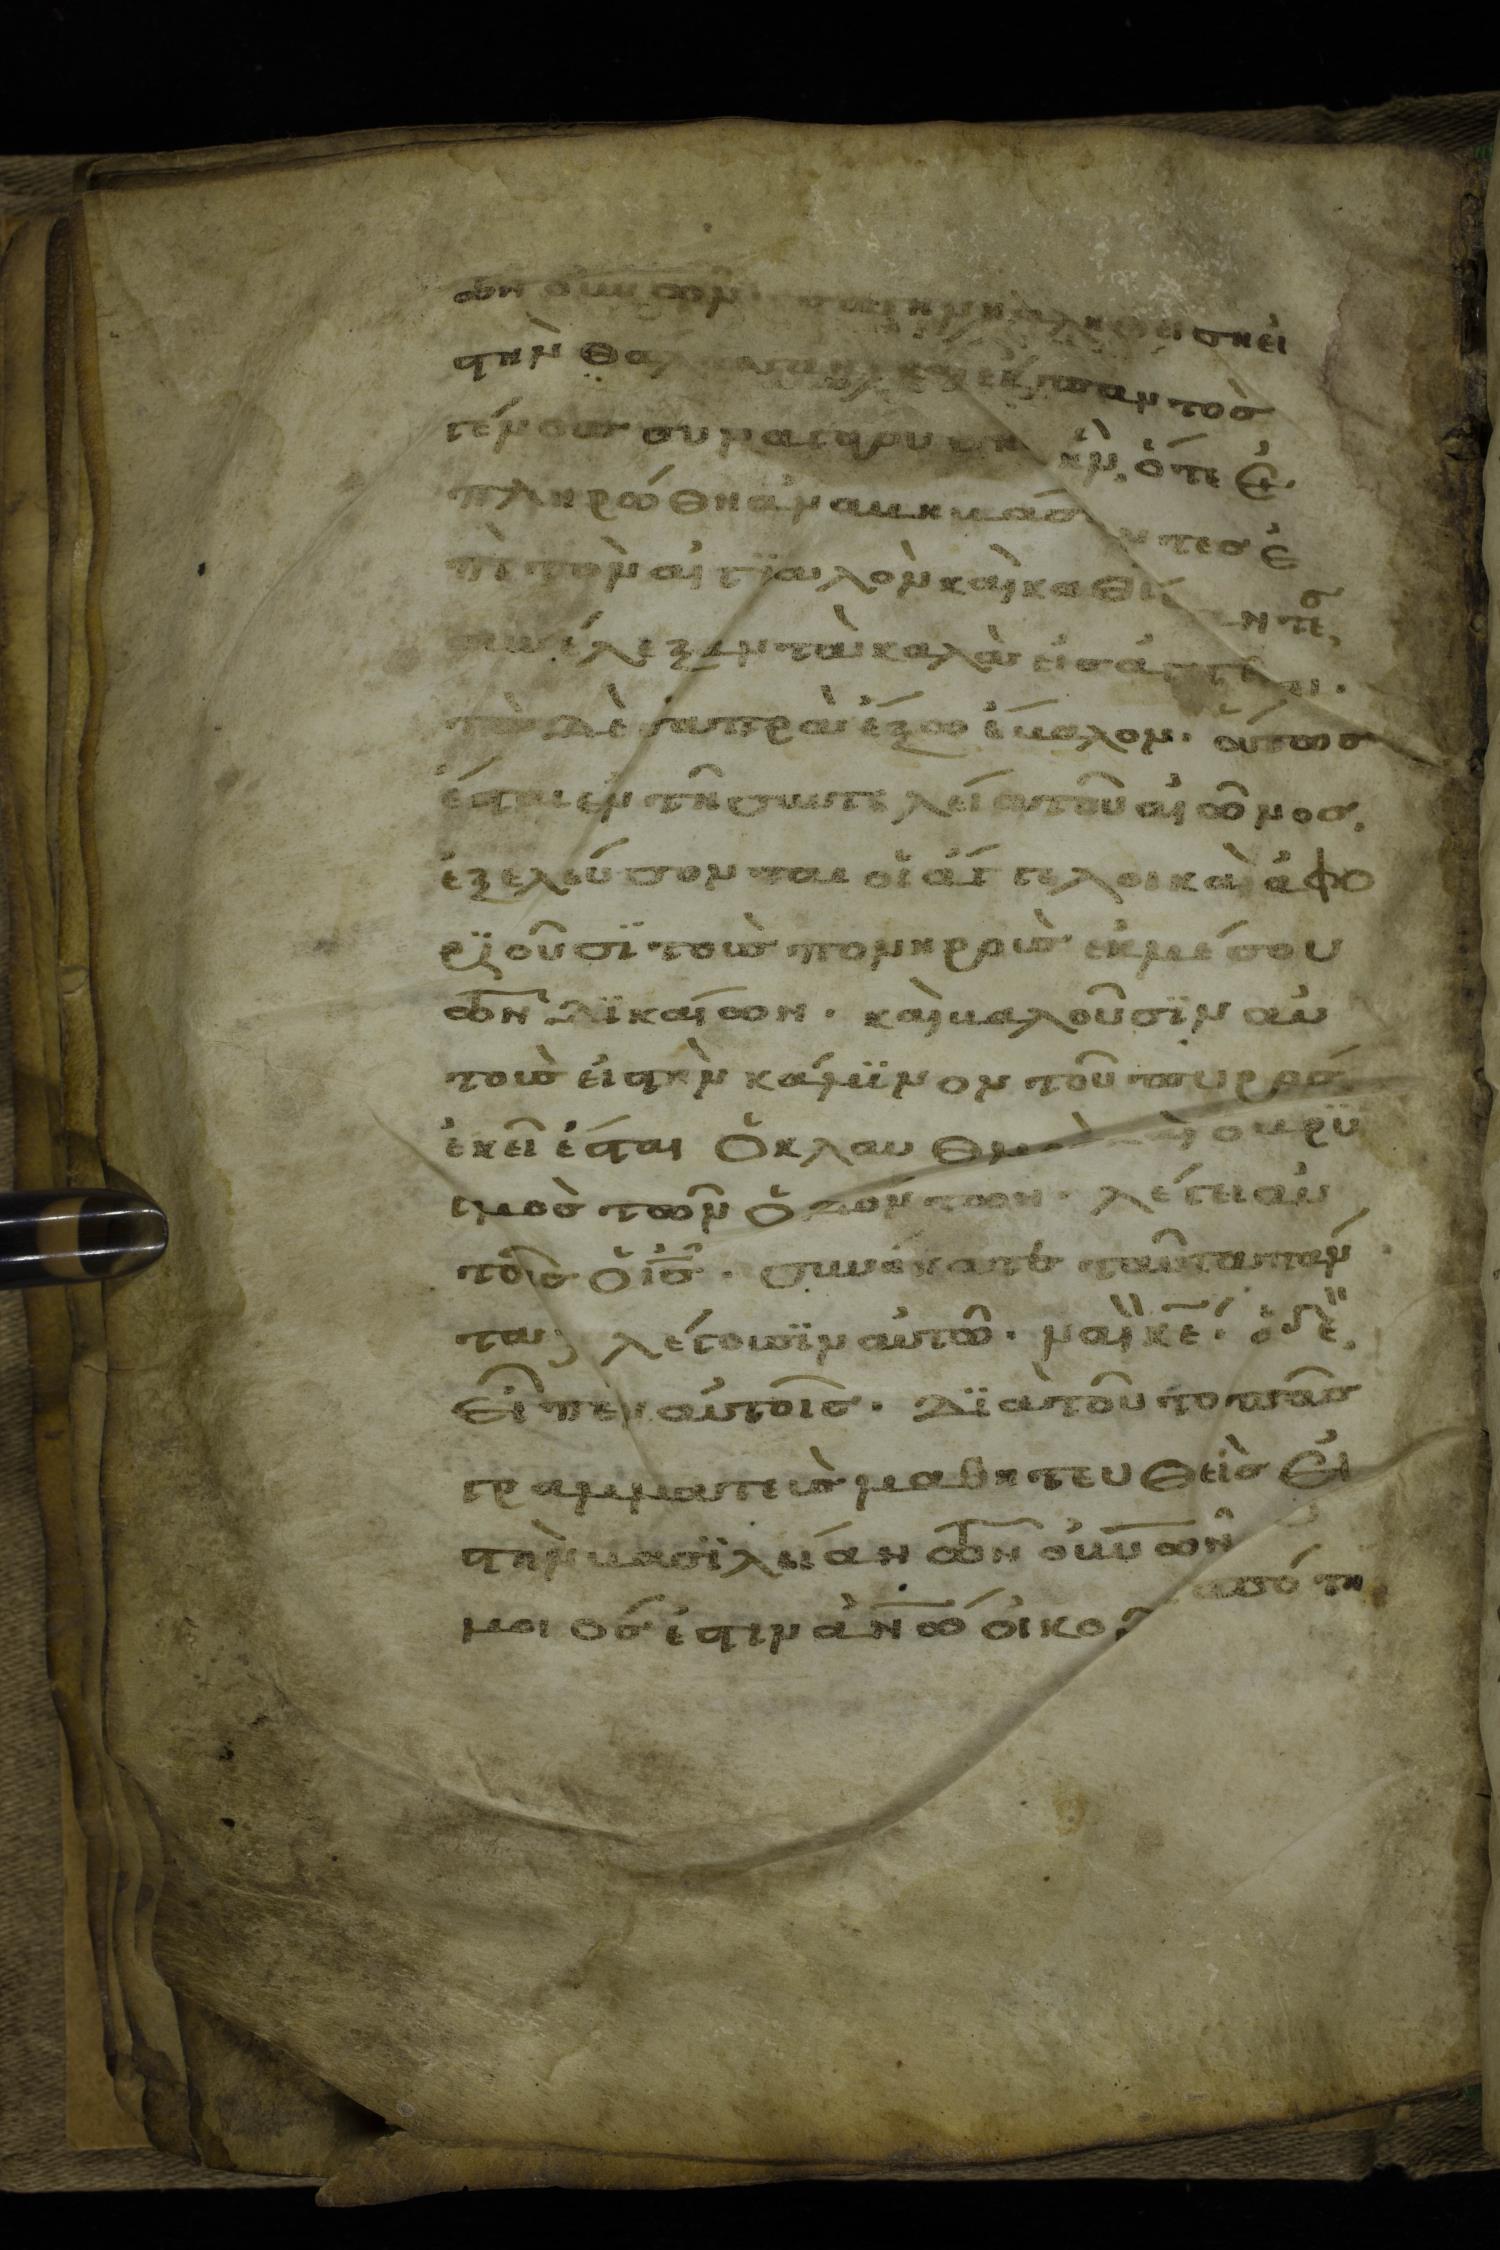 τῶν οὐνῶν σαγήνη βληθείση εἰ
τὴν θάλασσαν καὶ ἐκ παντὸς
γένους συναγαγού ἣν, ὅτε ἐ
πληρώθη ἀναβιβάσ ντες ἐ
πὶ τὸν αἰγϊαλὸν καὶ καθί
συνέλεξαν τὰ καλὰ εἰς ἀγγ
τὰ δὲ σαπρὰ ἔξω ἔβαλον. οὕτως
ἔσται ἐν τῆ συντελεία τοῦ αἰῶνος.
ἐξελεύσονται οἱ ἄγγελοι καὶ ἀφο
ρϊοῦσϊ τοὺς πονηροὺς ἐκ μέσου
τῶν δϊκαίων. καὶ βαλοῦσϊν αὐ
τοὺς εἰ τὴν κάμϊνον τοῦ πυρός,
ἐκεῖ ἔσται ὁ κλαυθμὸς καὶ ὁ βρϋ
γμὸς τῶν ὀδόντων. λέγει αὐ
τοῖς ὁ ἰς. συνήκατε ταῦτα πάν
τα; λέγουσϊν αὐτῶ. ναὶ κε. ὁ δὲ
εἶπεν αὐτοῖς. δϊὰ τοῦτο πᾶς
γραμματεὺς μαθητευθεὶς εἰ
τὴν βασϊλείαν τῶν οὐνῶν
μοιός ἐστιν ἀνω οἰκο